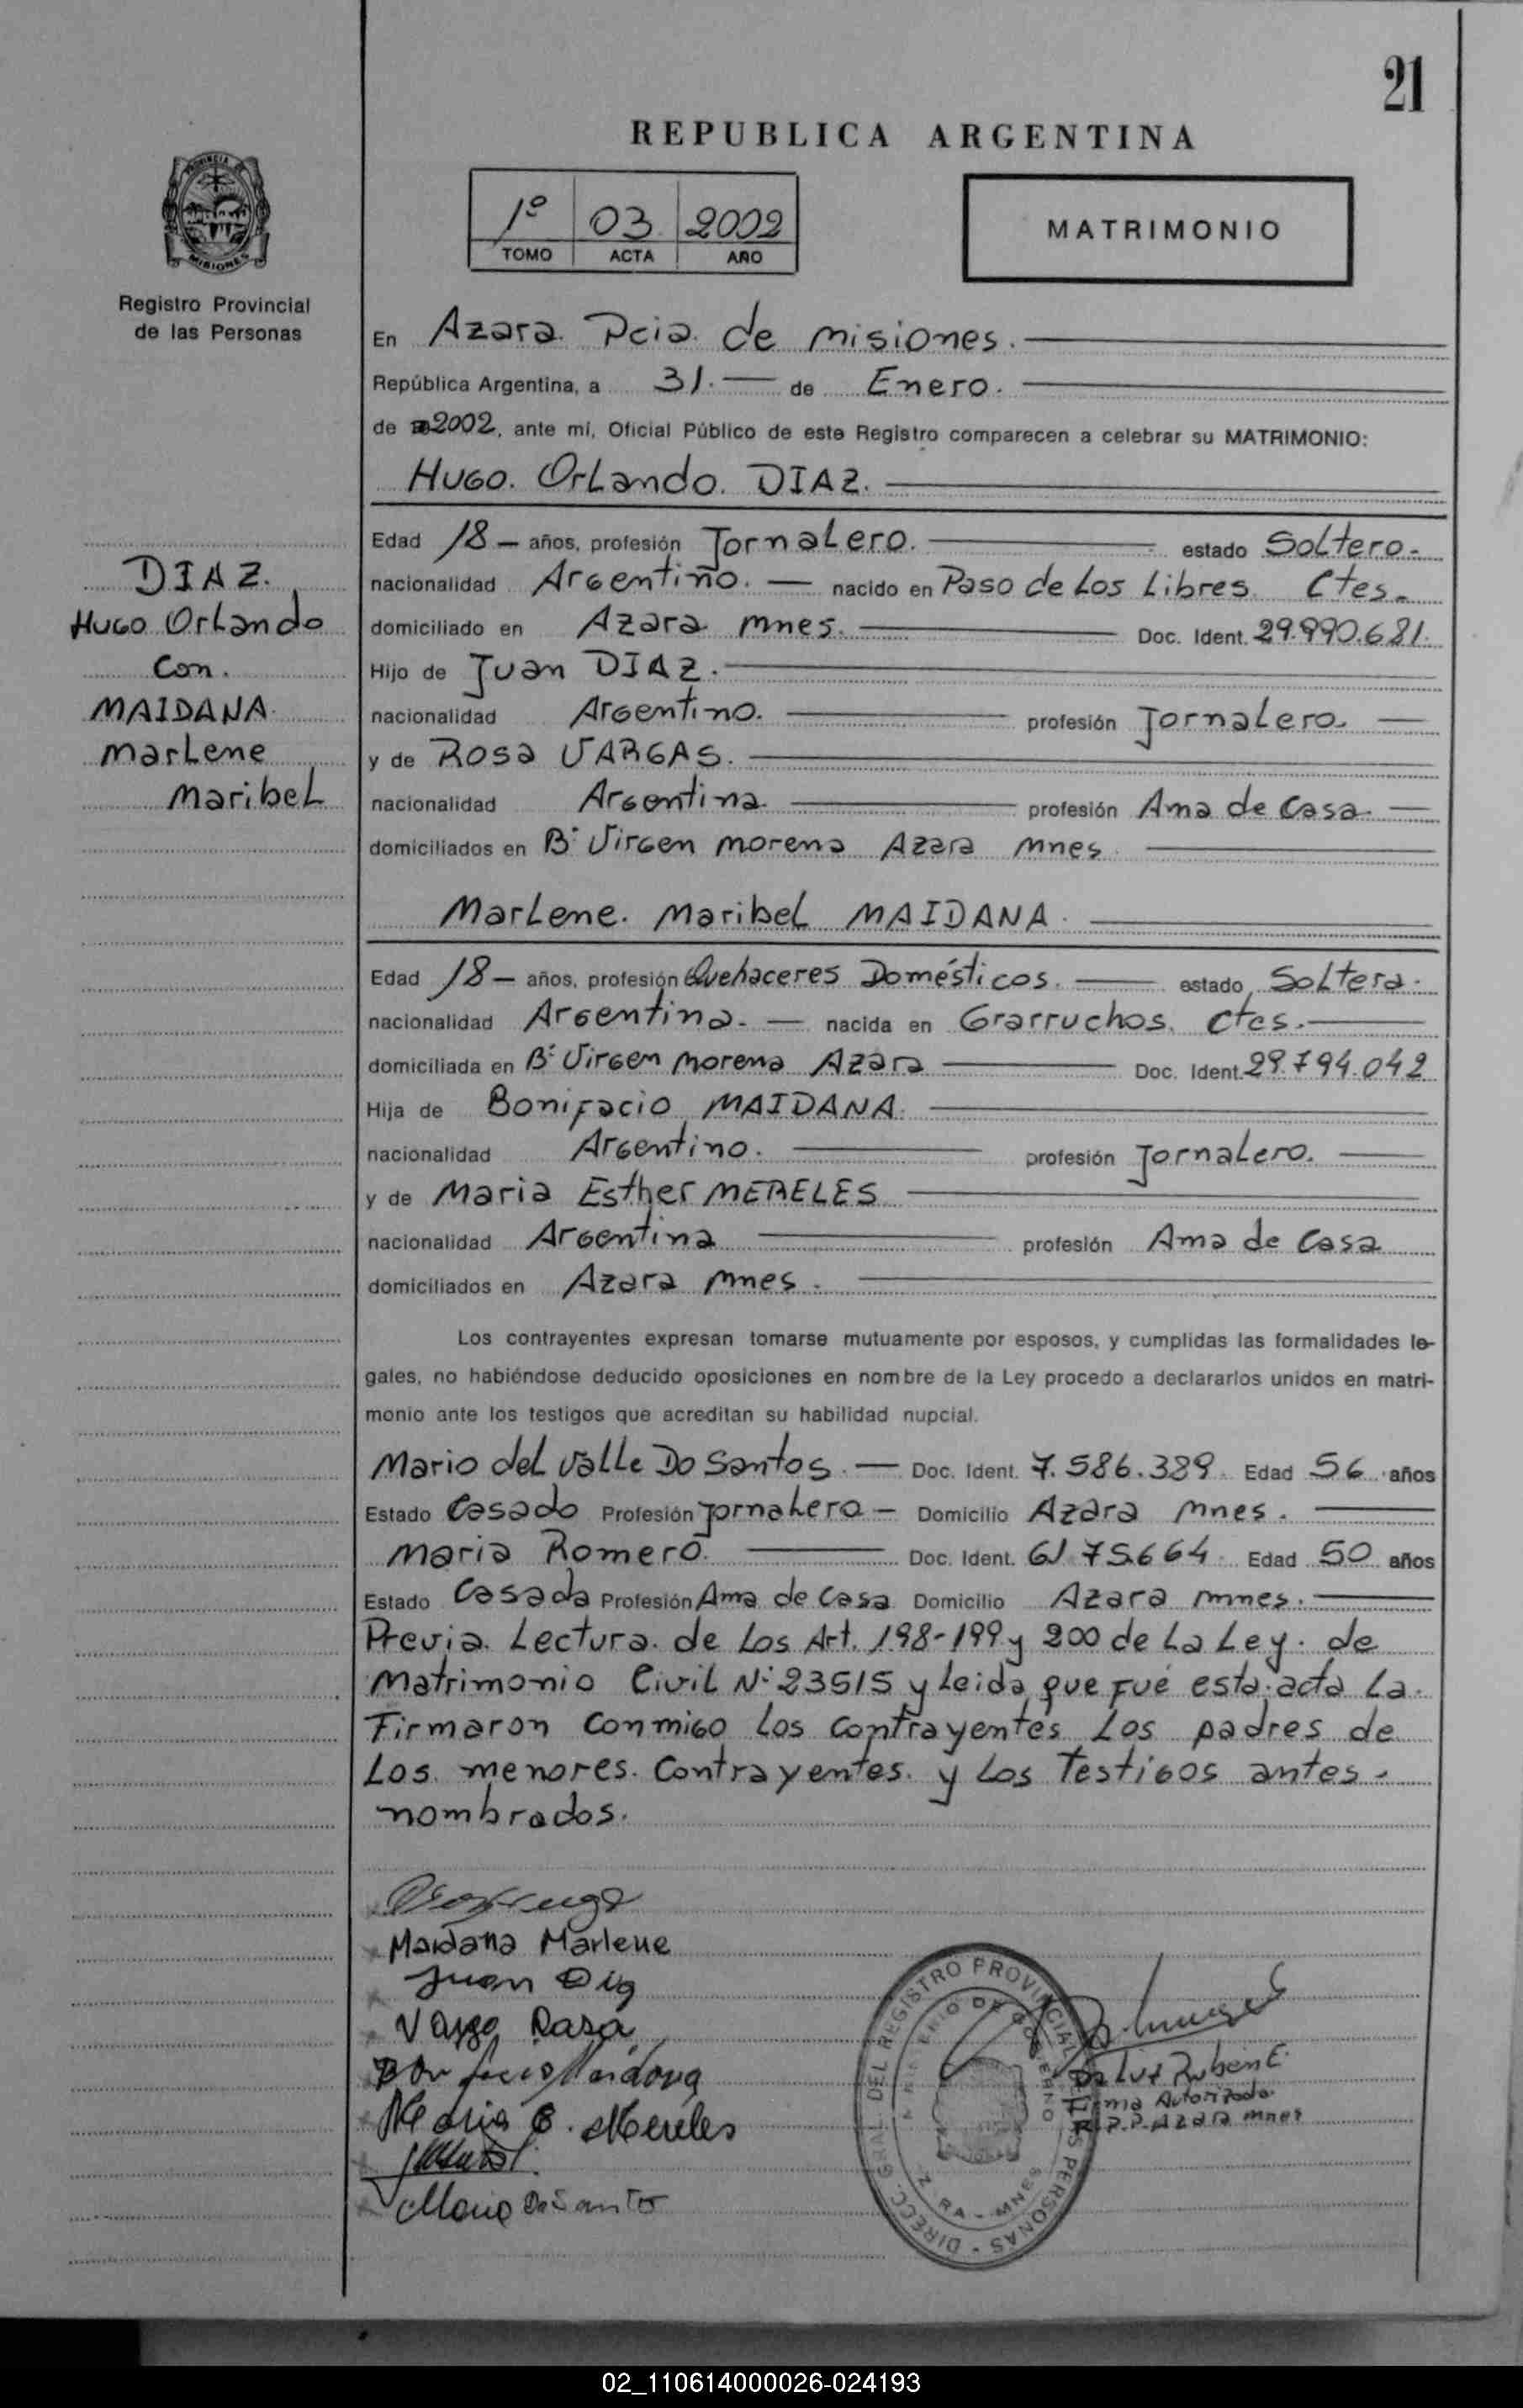 21
REPUBLICA ARGENTINA
1º 03 2002
TOMO ACTA AÑO
MATRIMONIO
PROVINCIA DE MISIONES
Registro Provincial
de las Personas
En Azara Pcia. de misiones.
República Argentina, a 31. de Enero.
de 2002, ante mí, Oficial Público de este Registro comparecen a celebrar su MATRIMONIO:
Hugo. Orlando. DIAZ.
Edad 18 años, profesión Jornalero. estado Soltero.
nacionalidad Argentino. nacido en Paso de Los Libres Ctes.
domiciliado en Azara mnes. Doc. Ident. 29.990.681.
Hijo de Juan DIAZ.
nacionalidad Argentino. profesión Jornalero.
y de Rosa VARGAS.
nacionalidad Argentina profesión Ama de Casa
domiciliados en Bº Virgen morena Azara mnes
DIAZ.
Hugo Orlando
Con.
MAIDANA
Marlene
Maribel
Marlene. Maribel MAIDANA.
Edad 18 años, profesión Quehaceres Domésticos. estado Soltera.
nacionalidad Argentina. nacida en Grarruchos. Ctes.
domiciliada en Bº Virgen Morena Azara Doc. Ident. 29.794.042
Hija de Bonifacio MAIDANA.
nacionalidad Argentino. profesión Jornalero.
y de Maria Esther MERELES
nacionalidad Argentina profesión Ama de Casa
domiciliados en Azara mnes.
Los contrayentes expresan tomarse mutuamente por esposos, y cumplidas las formalidades le-
gales, no habiéndose deducido oposiciones en nombre de la Ley procedo a declararlos unidos en matri-
monio ante los testigos que acreditan su habilidad nupcial.
Mario del Valle Do Santos. Doc. Ident. 7.586.389 Edad 56 años
Estado Casado Profesión Jornalero Domicilio Azara Mnes.
Maria Romero. Doc. Ident. 6175664 Edad 50 años
Estado Casada Profesión Ama de Casa Domicilio Azara mnes.
Previa. Lectura. de Los Art. 198-199 y 200 de La Ley. de
Matrimonio Civil Nº 23515 y Leida que fué esta acta La
Firmaron Conmigo Los Contrayentes Los padres de
Los menores. Contrayentes. y Los Testigos antes
nombrados.
Maidana Marlene
Juan
Rosa
Maidana
Maria E. Mereles
DIRECC. GRAL. DEL REGISTRO PROVINCIAL PERSONAS
MINISTERIO DE GOBIERNO
RA - MNES
Ruben E.
Firma Autorizada
R.P.P. AZARA mnes
Mario Do Santo
02_110614000026-024193